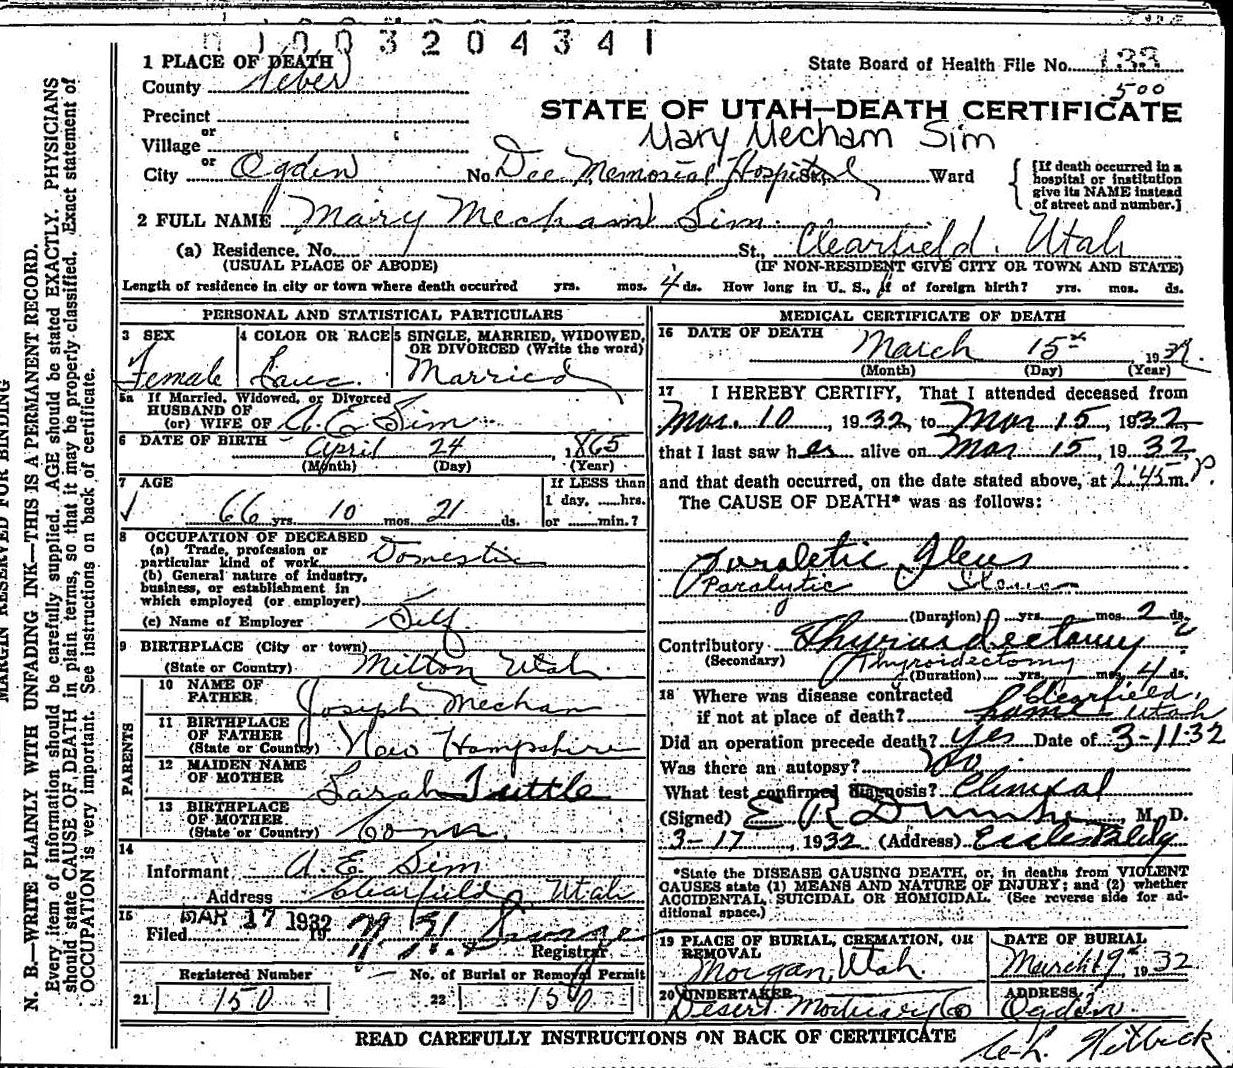 1003204341
1 PLACE OF DEATH
State Board of Health File No. 133
County Weber
500
STATE OF UTAH—DEATH CERTIFICATE
Precinct
or
Village
Mary Mecham Sim
or
City Ogden No. Dee Memorial Hospital St. Ward
[If death occurred in a hospital or institution give its NAME instead of street and number.]
2 FULL NAME Mary Mecham Sim
(a) Residence, No. St., Clearfield, Utah
(USUAL PLACE OF ABODE) (IF NON-RESIDENT GIVE CITY OR TOWN AND STATE)
Length of residence in city or town where death occurred yrs. mos. 4 ds. How long in U. S., if of foreign birth? yrs. mos. ds.
PERSONAL AND STATISTICAL PARTICULARS
3 SEX Female
4 COLOR OR RACE Cauc.
5 SINGLE, MARRIED, WIDOWED, OR DIVORCED (Write the word) Married
5a If Married, Widowed, or Divorced
HUSBAND OF
(or) WIFE OF A. E. Sim
6 DATE OF BIRTH April 24, 1865
(Month) (Day) (Year)
7 AGE
66 yrs. 10 mos. 21 ds.
If LESS than
1 day, hrs.
or min.?
8 OCCUPATION OF DECEASED
(a) Trade, profession or
particular kind of work Domestic
(b) General nature of industry,
business, or establishment in
which employed (or employer)
(c) Name of Employer Self
9 BIRTHPLACE (City or town)
(State or Country) Milton Utah
PARENTS
10 NAME OF
FATHER Joseph Mecham
11 BIRTHPLACE
OF FATHER
(State or Country) New Hampshire
12 MAIDEN NAME
OF MOTHER Sarah Tuttle
13 BIRTHPLACE
OF MOTHER
(State or Country) Conn.
14
Informant A. E. Sim
Address Clearfield Utah
15 MAR 17 1932
Filed 19
Registrar
Registered Number No. of Burial or Removal Permit
21 150 22 150
MEDICAL CERTIFICATE OF DEATH
16 DATE OF DEATH
March 15th 1932.
(Month) (Day) (Year)
17 I HEREBY CERTIFY, That I attended deceased from
Mar. 10, 1932, to Mar 15, 1932
that I last saw her alive on Mar 15, 1932
and that death occurred, on the date stated above, at 2:45 m. P.
The CAUSE OF DEATH* was as follows:
Paraletic Ileus
Paralytic Ileus
(Duration) yrs. mos. 2 ds.
Contributory Thyroidectomy
(Secondary) Thyroidectomy
(Duration) yrs. mos. 4 ds.
18 Where was disease contracted Clearfield,
if not at place of death? home Utah
Did an operation precede death? Yes Date of 3-11-32
Was there an autopsy? No
What test confirmed diagnosis? Clinical
(Signed) E R M. D.
3-17, 1932 (Address) Eccles Bldg
*State the DISEASE CAUSING DEATH, or, in deaths from VIOLENT
CAUSES state (1) MEANS AND NATURE OF INJURY; and (2) whether
ACCIDENTAL, SUICIDAL OR HOMICIDAL. (See reverse side for ad-
ditional space.)
19 PLACE OF BURIAL, CREMATION, OR
REMOVAL
Morgan, Utah.
DATE OF BURIAL
March 19th 1932
20 UNDERTAKER
Deseret Mortuary Co
ADDRESS
Ogden
READ CAREFULLY INSTRUCTIONS ON BACK OF CERTIFICATE
MARGIN RESERVED FOR BINDING
N. B.—WRITE PLAINLY WITH UNFADING INK—THIS IS A PERMANENT RECORD.
Every item of information should be carefully supplied. AGE should be stated EXACTLY. PHYSICIANS
should state CAUSE OF DEATH in plain terms, so that it may be properly classified. Exact statement of
OCCUPATION is very important. See instructions on back of certificate.